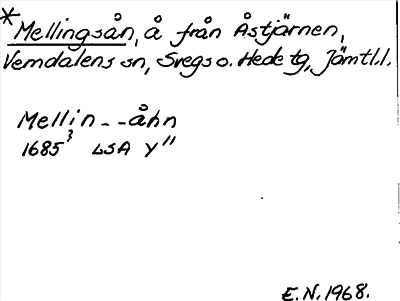 * Mellingsån, å från Åstjärnen,
Vemdalens sn, Svegs o. Hede tg, Jämtl.l.
Mellin - - åhn
1685 3/ LSA Y''
E.N. 1968.